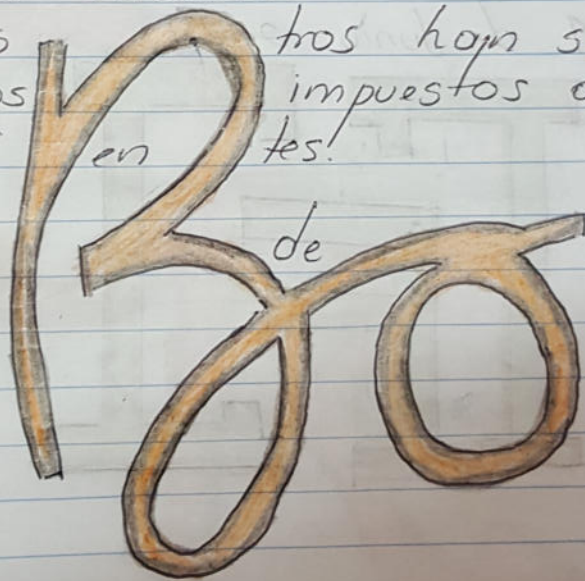 tros han
os impuestos
en tes.
de
Bo